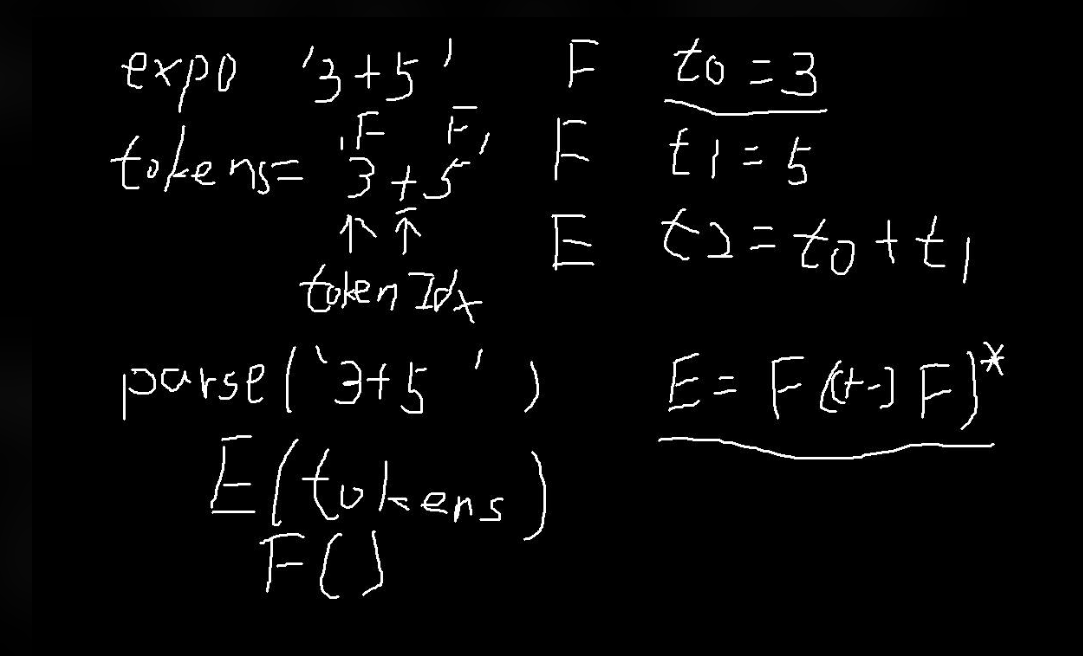 exp0 '3+5'
F F
tokens= '3+5'
↑ ↑
tokenIdx
parse('3+5 ')
E(tokens)
F()
F t0=3
F t1=5
E t2=t0+t1
E=F([+-]F)*